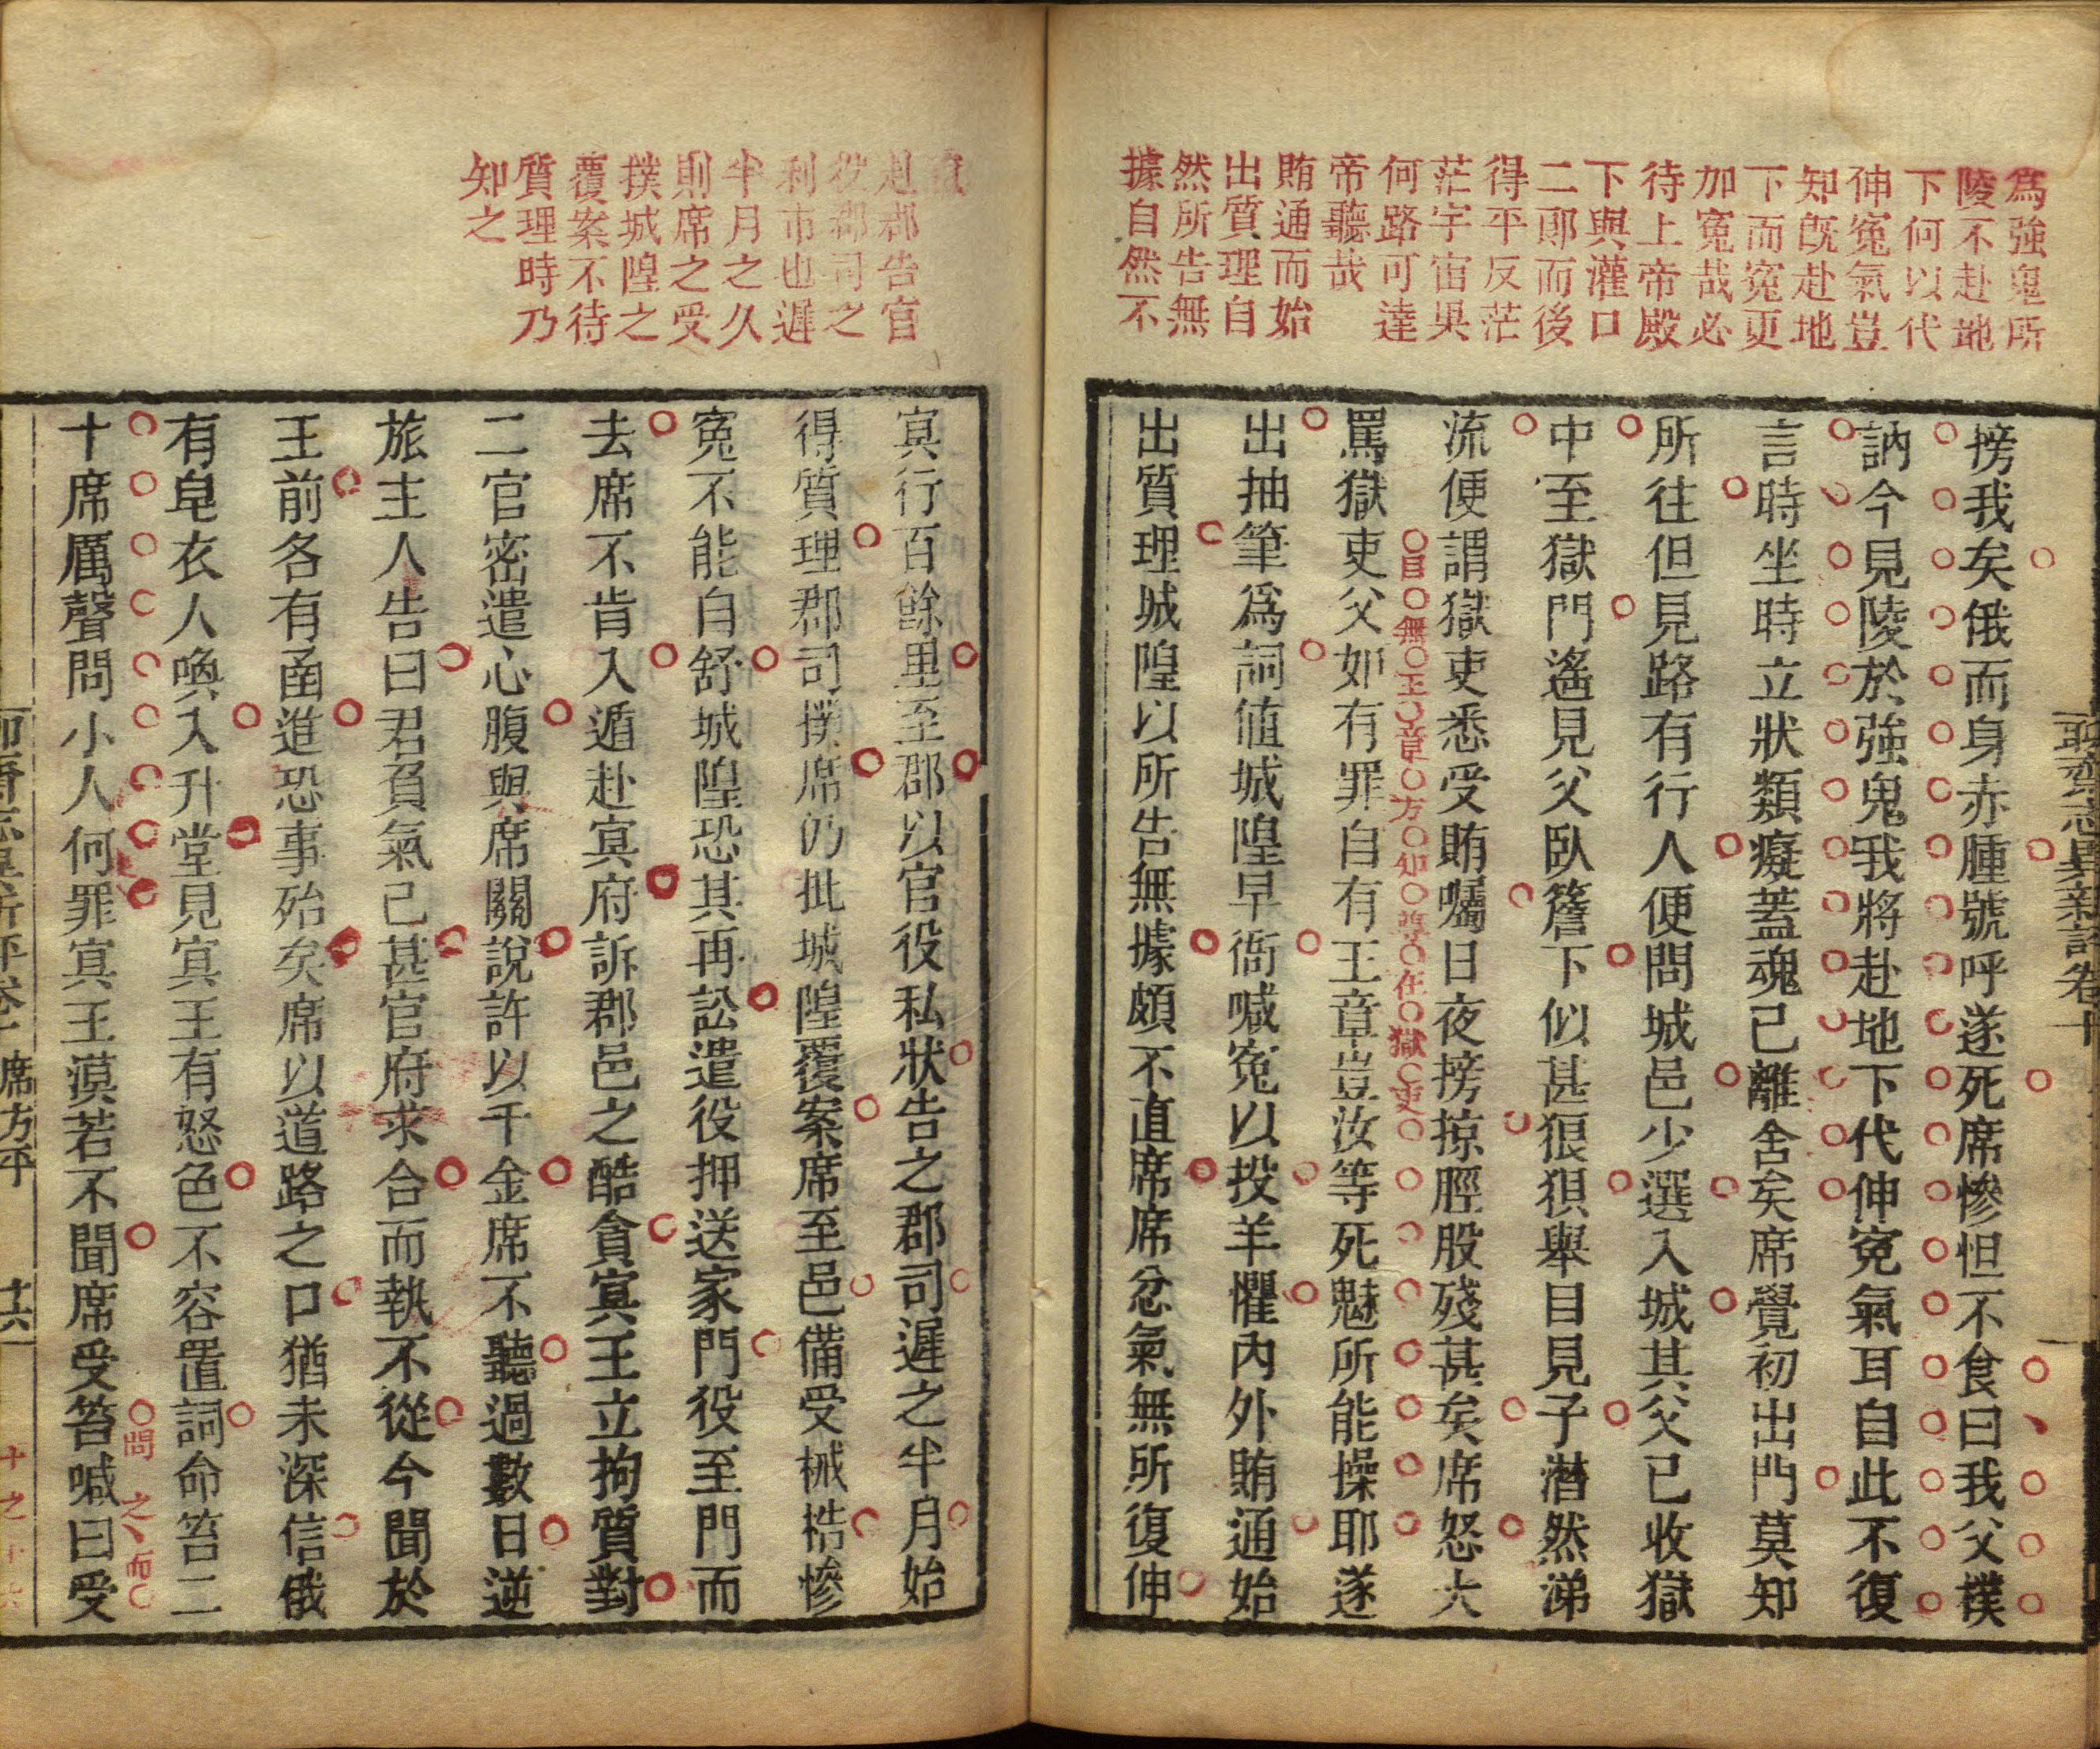 爲強鬼所
陵不赴地
下何以代
伸寃氣豈
知旣赴地
下而寃更
加寃哉必
待上帝殿
下與灌口
二郎而後
得平反茫
茫宇宙果
何路可達
帝聽哉
賄通而始
出質理自
然所告無
據自然不
聊齋志異新評卷十
搒我矣俄而身赤腫號呼遂死席慘怛不食曰我父樸
訥今見陵於強鬼我將赴地下代伸寃氣耳自此不復
言時坐時立狀類癡蓋魂已離舍矣席覺初出門莫知
所往但見路有行人便問城邑少選入城其父已收獄
中至獄門遙見父臥簷下似甚狼狽舉目見子潸然涕
流便謂獄吏悉受賄囑日夜搒掠脛股殘甚矣席怒大
目無王章方知在獄吏
罵獄吏父如有罪自有王章豈汝等死魅所能操耶遂
出抽筆爲詞値城隍早衙喊寃以投羊懼內外賄通始
出質理城隍以所告無據頗不直席席忿氣無所復伸
赴郡告官
役郡司之
利市也遲
半月之久
則席之受
撲城隍之
覆案不待
質理時乃
知之
冥行百餘里至郡以官役私狀告之郡司遲之半月始
得質理郡司撲席仍批城隍覆案席至邑備受械梏慘
寃不能自舒城隍恐其再訟遣役押送家門役至門而
去席不肯入遁赴冥府訴郡邑之酷貪冥王立拘質對
二官密遣心腹與席關說許以千金席不聽過數日逆
旅主人告曰君負氣已甚官府求合而執不從今聞於
王前各有函進恐事殆矣席以道路之口猶未深信俄
有皂衣人喚入升堂見冥王有怒色不容置詞命笞二
十席厲聲問小人何罪冥王漠若不聞席受笞喊曰受
問之而
席方平
十六